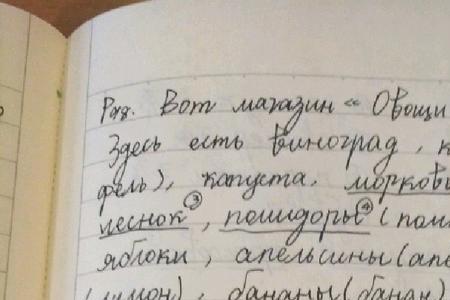 Рад. Вот магазин « Овощи
Здесь есть виноград, к
фель), капуста, морковь
леснок③, помидоры④ (пом
яблоки, апельсины (апе
(лимон), бананы (банан)